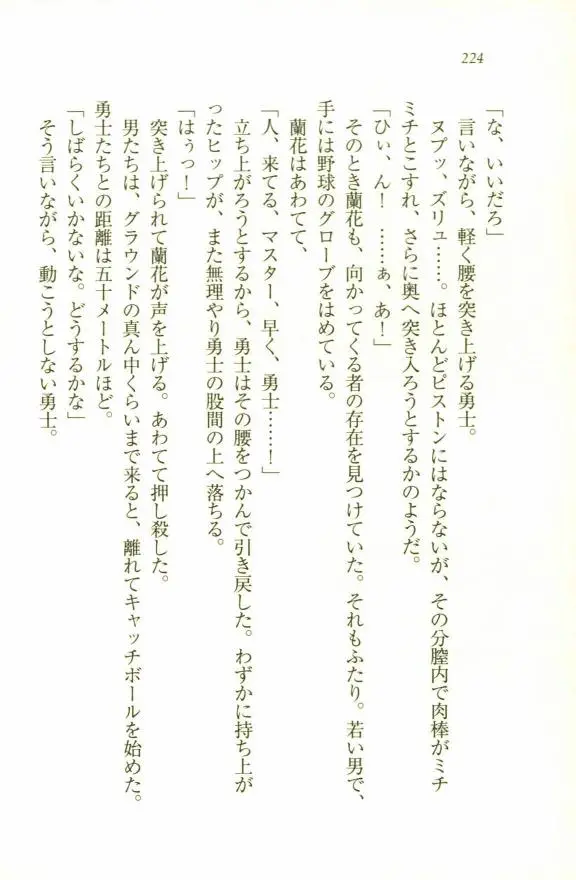 224
「な、いいだろ」
言いながら、軽く腰を突き上げる勇士。
ヌプッ、ズリュ……。ほとんどピストンにはならないが、その分膣内で肉棒がミチ
ミチとこすれ、さらに奥へ突き入ろうとするかのようだ。
「ひぃ、ん！　……ぁ、あ！」
そのとき蘭花も、向かってくる者の存在を見つけていた。それもふたり。若い男で、
手には野球のグローブをはめている。
蘭花はあわてて、
「人、来てる、マスター、早く、勇士……！」
立ち上がろうとするから、勇士はその腰をつかんで引き戻した。わずかに持ち上が
ったヒップが、また無理やり勇士の股間の上へ落ちる。
「はぅっ！」
突き上げられて蘭花が声を上げる。あわてて押し殺した。
男たちは、グラウンドの真ん中くらいまで来ると、離れてキャッチボールを始めた。
勇士たちとの距離は五十メートルほど。
「しばらくいかないな。どうするかな」
そう言いながら、動こうとしない勇士。